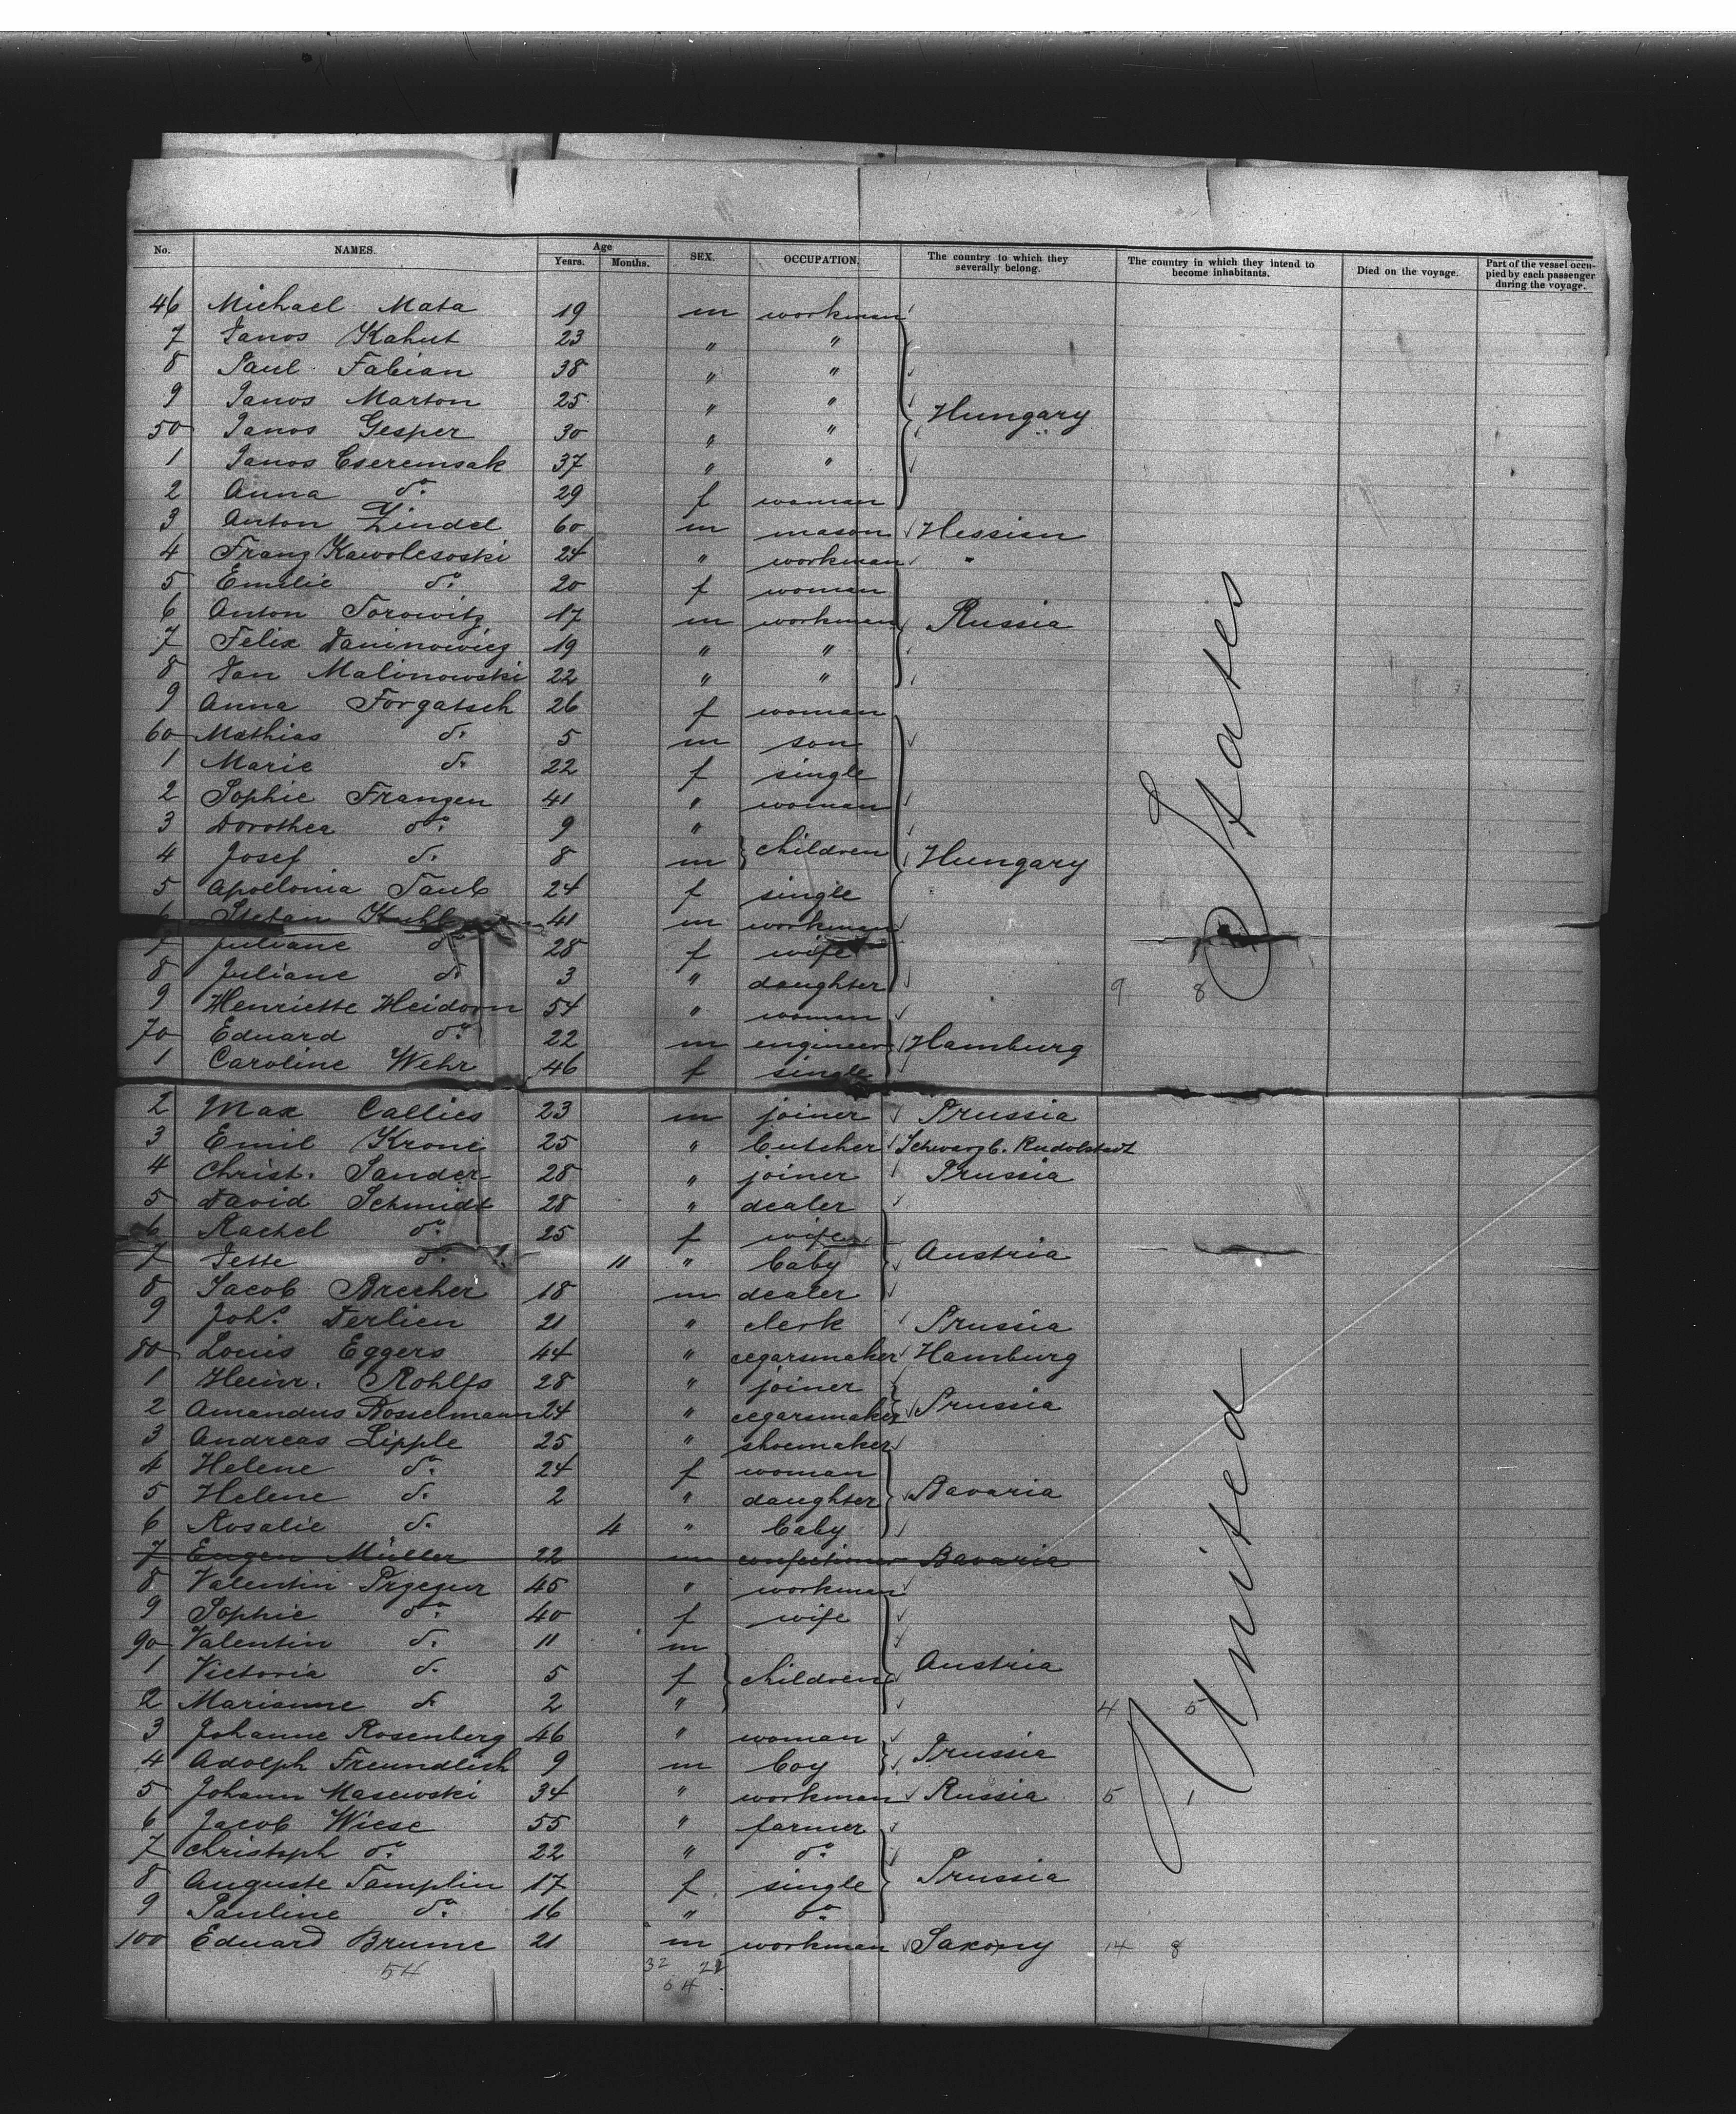 No. NAMES. Age Years. Months. SEX. OCCUPATION. The country to which they severally belong. The country in which they intend to become inhabitants. Died on the voyage. Part of the vessel occupied by each passenger during the voyage.
46 Michael Mata 19 m workman
7 Janos Kahut 23 " "
8 Paul Fabian 38 " "
9 Janos Marton 25 " " Hungary
50 Janos Gesper 30 " "
1 Janos Cseremsak 37 " "
2 Anna do. 29 f woman
3 Anton Zindel 60 m mason Hessien
4 Franz Kawolesoski 24 " workman "
5 Emilie do. 20 f woman
6 Anton Torowitz 17 m workman Russia
7 Felix Daninowicz 19 " "
8 Jan Malinowski 22 " "
9 Anna Forgatsch 26 f woman
60 Mathias do. 5 m son
1 Marie do. 22 f single
2 Sophie Frangen 41 " woman
3 Dorothea do. 9 "
4 Josef do. 8 m children Hungary
5 Apollonia Taub 24 f single
6 Stefan Kuhl 41 m workman
7 Juliane do. 28 f wife
8 Juliane do. 3 " daughter 9 8
9 Henriette Heidorn 54 " woman
70 Eduard do. 22 m engineer Hamburg
1 Caroline Wehr 46 f single
2 Max Callies 23 m joiner Prussia
3 Emil Krone 25 " butcher Schwarzb. Rudolstadt
4 Christ. Sander 28 " joiner Prussia
5 David Schmidt 28 " dealer
6 Rachel do. 25 f wife
7 Jette do. 11 " baby Austria
8 Jacob Brecher 18 m dealer
9 Johs. Derlien 21 " clerk Prussia
80 Louis Eggers 44 " cegarsmaker Hamburg
1 Heinr. Rohlfs 28 " joiner
2 Amandus Rosselmann 24 " cegarsmaker Prussia
3 Andreas Lipple 25 " shoemaker
4 Helene do. 24 f woman
5 Helene do. 2 " daughter Bavaria
6 Rosalie do. 4 " baby
7 Eugen Müller 22 m confectioner Bavaria
8 Valentin Przegur 45 " workman
9 Sophie do. 40 f wife
90 Valentin do. 11 m
1 Victoria do. 5 f children Austria
2 Marianne do. 2 " 4 5
3 Johanne Rosenberg 46 " woman
4 Adolph Freundlich 9 m boy Prussia
5 Johann Masewski 34 " workman Russia 5 1
6 Jacob Wiese 55 " farmer
7 Christoph do. 22 " do.
8 Auguste Templin 17 f single Prussia
9 Pauline do. 16 " do.
100 Eduard Brume 21 m workman Saxony 14 8
54 32 22
54
United States